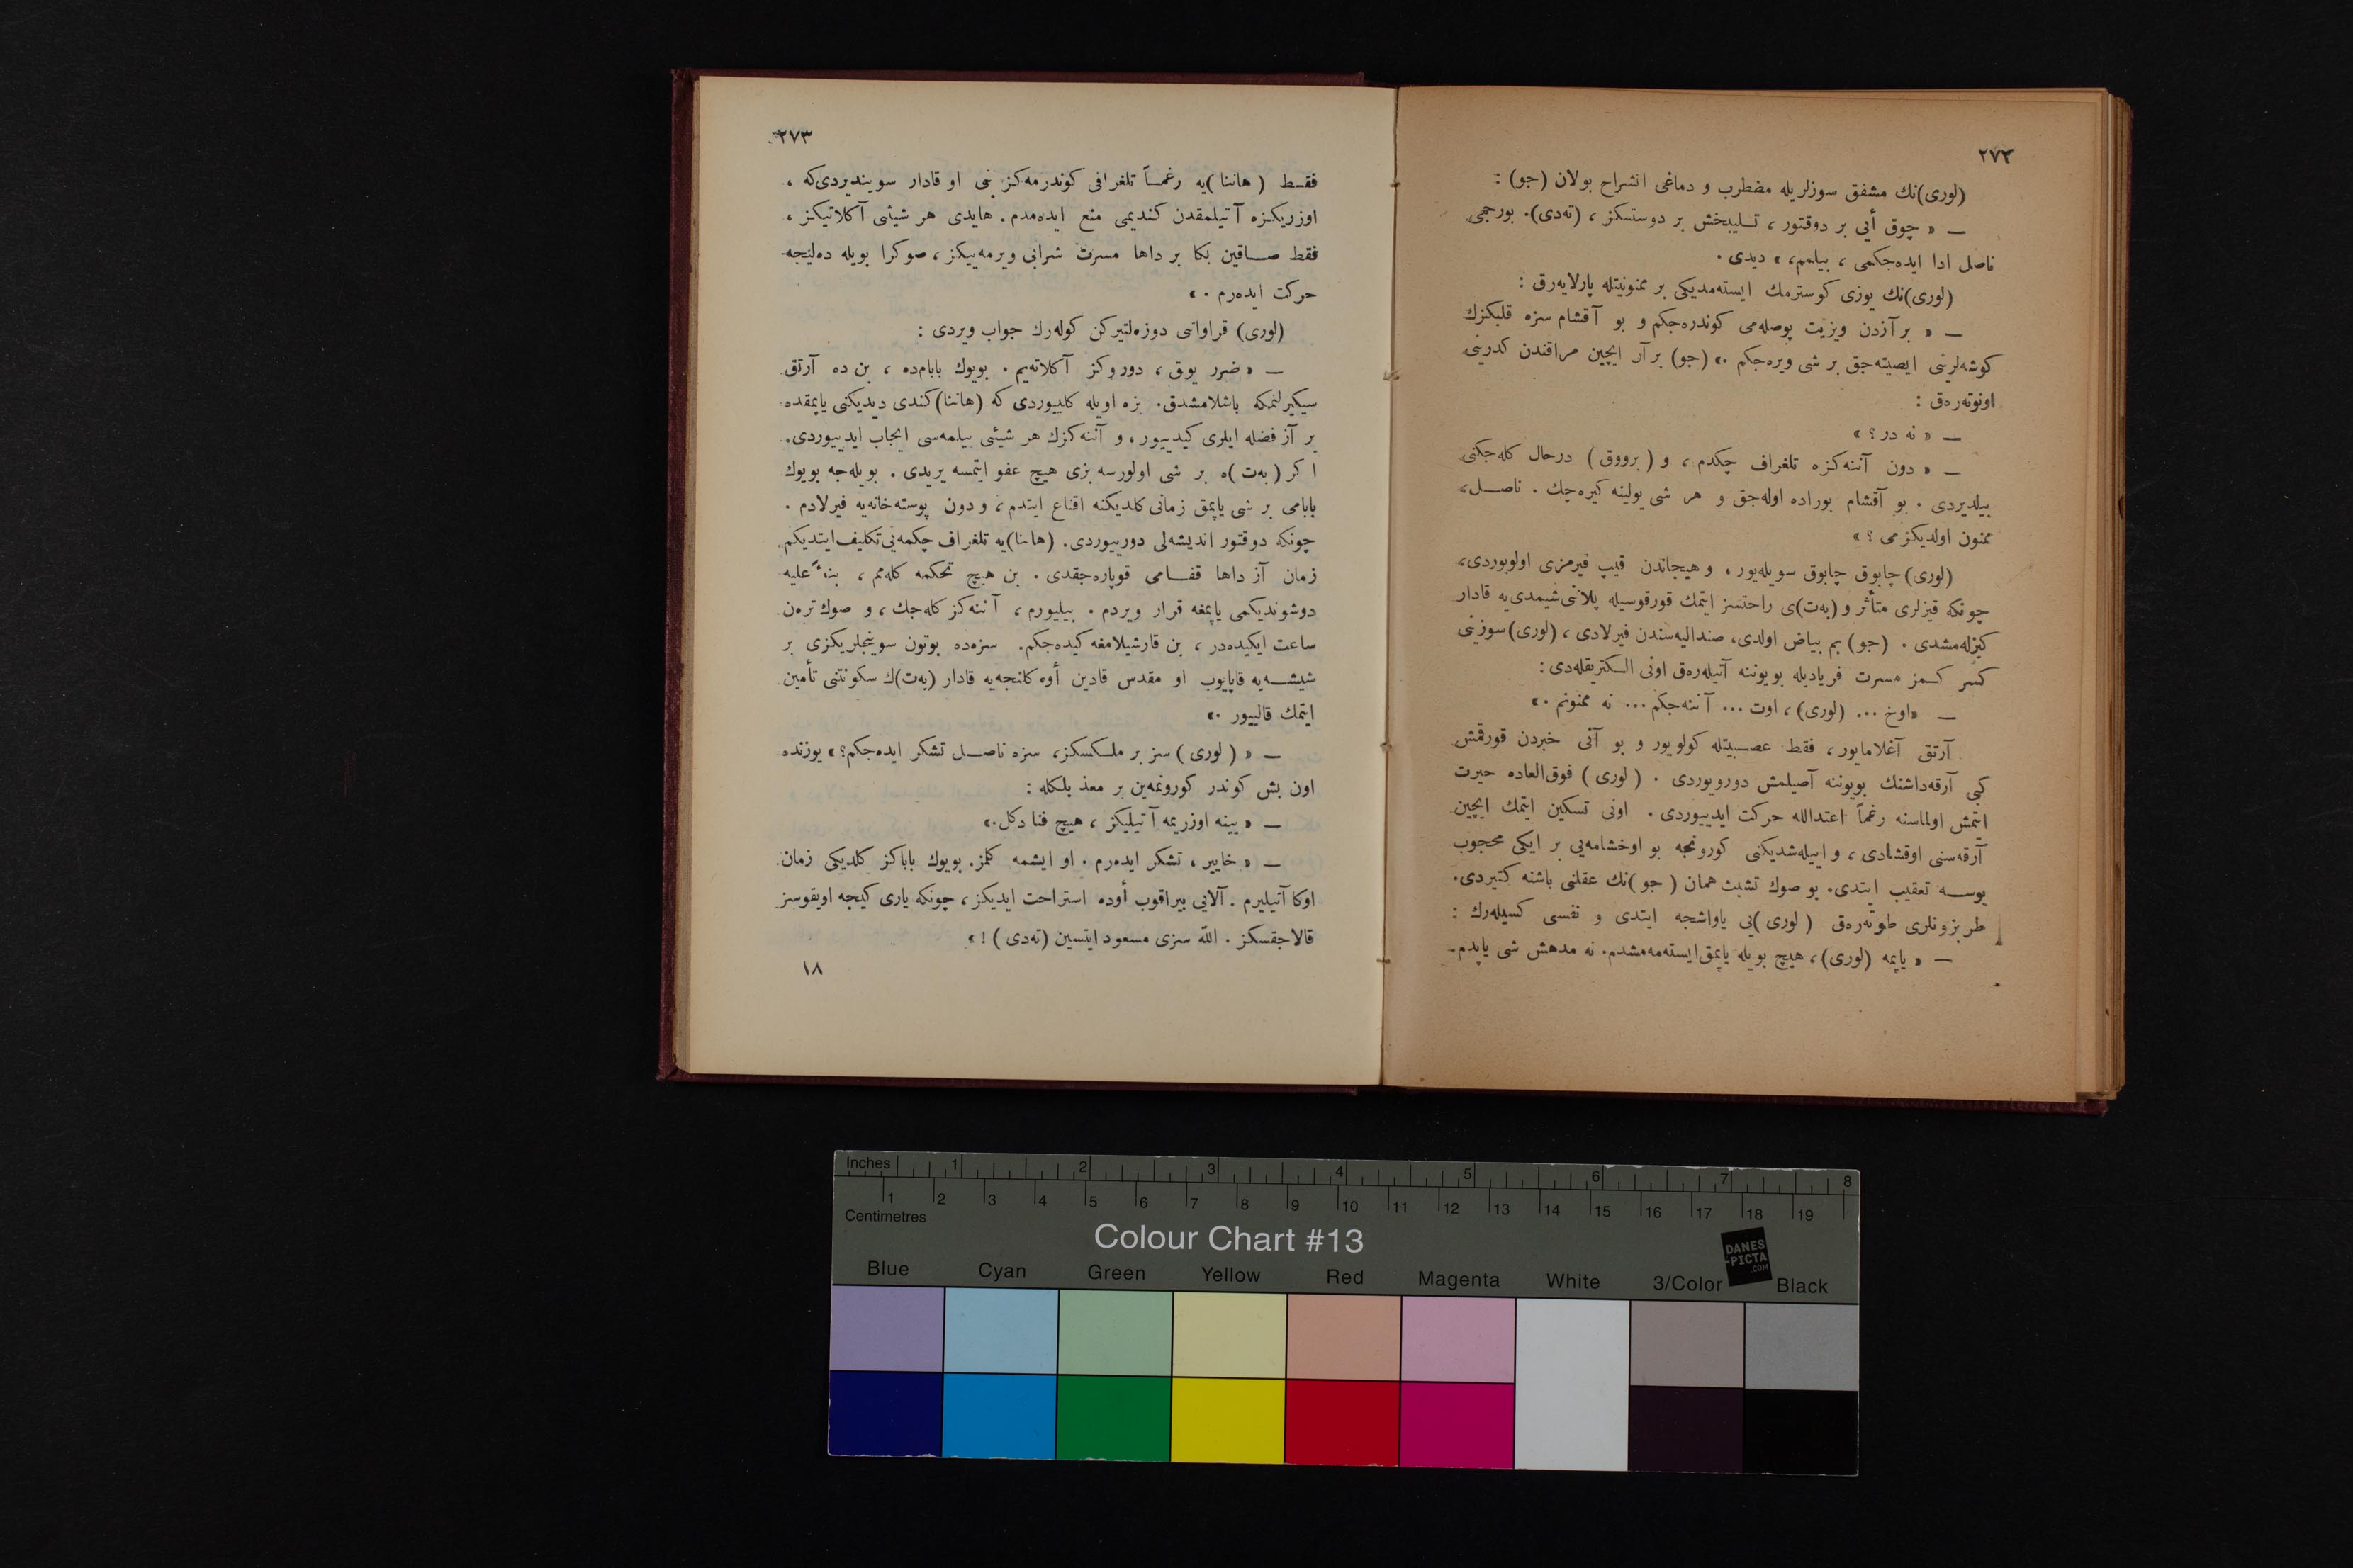 ٢٧٢
(لوری)نك مشفق سوزلریله مضطرب و دماغی انشراح بولان (جو) :
— « چوق أیی بر دوقتور ، تسلیبخش بر دوستسكز ، (تەدی). بورجمی
ناصل ادا ایدەجكمی ، بیلمم، » دیدی .
(لوری)نك یوزی كوسترمك ایستەمدیكی بر ممنونیتله پارلایەرق :
— « بر آزدن ویزیت پوصلەمی كوندرەجكم و بو آقشام سزه قلبكزك
كوشەلرینی ایصیتەجق بر شی ویرەجكم .» (جو) بر آز ایچین مراقندن كدرینی
اونوتەرەق :
— « نه در ؟ »
— « دون آننەكزه تلغراف چكدم ، و (برووق) درحال كلەجكنی
بیلدیردی . بو آقشام بورادە اولەجق و هر شی یولینه كیرەجك . ناصل،
ممنون اولدیكز می ؟ »
(لوری) چابوق چابوق سویلەیور ، و هیجاندن قیپ قیرمزی اولویوردی،
چونكه قیزلری متأثر و (بەت)ی راحتسز ایتمك قورقوسیله پلاننی شیمدی‌یه قادار
كیزلەمشدی . (جو) بم بیاض اولدی، صندالیەسندن فیرلادی ، (لوری) سوزینی
كسر كسمز مسرت فریادیله بویوننه آتیلەرەق اونی الكتریقلەدی :
— «اوخ ... (لوری) ، اوت ... آننەجكم ... نه ممنونم .»
آرتق آغلامایور ، فقط عصبیتله كولویور و بو آنی خبردن قورقمش
كبی آرقەداشنك بویوننه آصیلمش دورویوردی . (لوری) فوق‌العاده حیرت
ایتمش اولماسنه رغماً اعتدالله حركت ایدییوردی . اونی تسكین ایتمك ایچین
آرقەسنی اوقشادی ، و اییلەشدیكنی كورونجه بو اوخشامەیی بر ایكی محجوب
بوسه تعقیب ایتدی. بو صوك تشبث همان (جو)نك عقلنی باشنه كتیردی.
طربزونلری طوتەرەق (لوری)یی یاواشجه ایتدی و نفسی كسیلەرك :
— « یاپمه (لوری) ، هیچ بویله یاپمق ایستەمەمشدم. نه مدهش شی یاپدم.
٢٧٣
فقط (هاننا)یه رغماً تلغرافی كوندرمەكز بنی او قادار سویندیردی‌كه ،
اوزریكزه آتیلمقدن كندیمی منع ایدەمدم . هایدی هر شیئی آكلاتیكز ،
فقط صاقین بكا بر داها مسرت شرابی ویرمەییكز ، صوكرا بویله دەلیجه
حركت ایدەرم . »
(لوری) قراواتنی دوزەلتیركن كولەرك جواب ویردی :
— « ضرر یوق ، دوروكز آكلاتەیم . بویوك بابام‌ده ، بن ده آرتق
سیكیرلنمكه باشلامشدق. بزه اویله كلییوردی كه (هاننا) كندی دیدیكنی یاپمقده
بر آز فضله ایلری كیدییور ، و آننەكزك هر شیئی بیلمەسی ایجاب ایدییوردی.
اكر (بەت)ه بر شی اولورسه بزی هیچ عفو ایتمسه یریدی . بویلەجه بویوك
بابامی بر شی یاپمق زمانی كلدیكنه اقناع ایتدم ، و دون پوسته‌خانەیه فیرلادم .
چونكه دوقتور اندیشەلی دورییوردی. (هاننا)یه تلغراف چكمەیی تكلیف ایتدیكم
زمان آز داها قفامی قوپارەجقدی . بن هیچ تحكمه كلەمم ، بناءً علیه
دوشوندیكمی یاپمغه قرار ویردم . بیلییورم ، آننەكز كلەجك ، و صوك ترەن
ساعت ایكیدەدر ، بن قارشیلامغه كیدەجكم. سزەده بوتون سوینجلریكزی بر
شیشەیه قاپایوب او مقدس قادین أوه كلنجەیه قادار (بەت)ك سكونتنی تأمین
ایتمك قالییور .»
— « (لوری) سز بر ملكسكز، سزه ناصل تشكر ایدەجكم؟ » یوزنده
اون بش كوندر كورونمەین بر معذ بلكله :
— « یینه اوزریمه آتیلیكز ، هیچ فنا دكل.»
— « خاییر ، تشكر ایدەرم . او ایشمه كلمز. بویوك باباكز كلدیكی زمان
اوكا آتیلیرم . آلایی بیراقوب أوده استراحت ایدیكز ، چونكه یاری كیجه اویقوسز
قالاجقسكز . الله سزی مسعود ایتسین (تەدی) ! »
١٨
Inches 1 2 3 4 5 6 7 8
1 2 3 4 5 6 7 8 9 10 11 12 13 14 15 16 17 18 19
Centimetres
Colour Chart #13
DANES
-PICTA
.COM
Blue Cyan Green Yellow Red Magenta White 3/Color Black